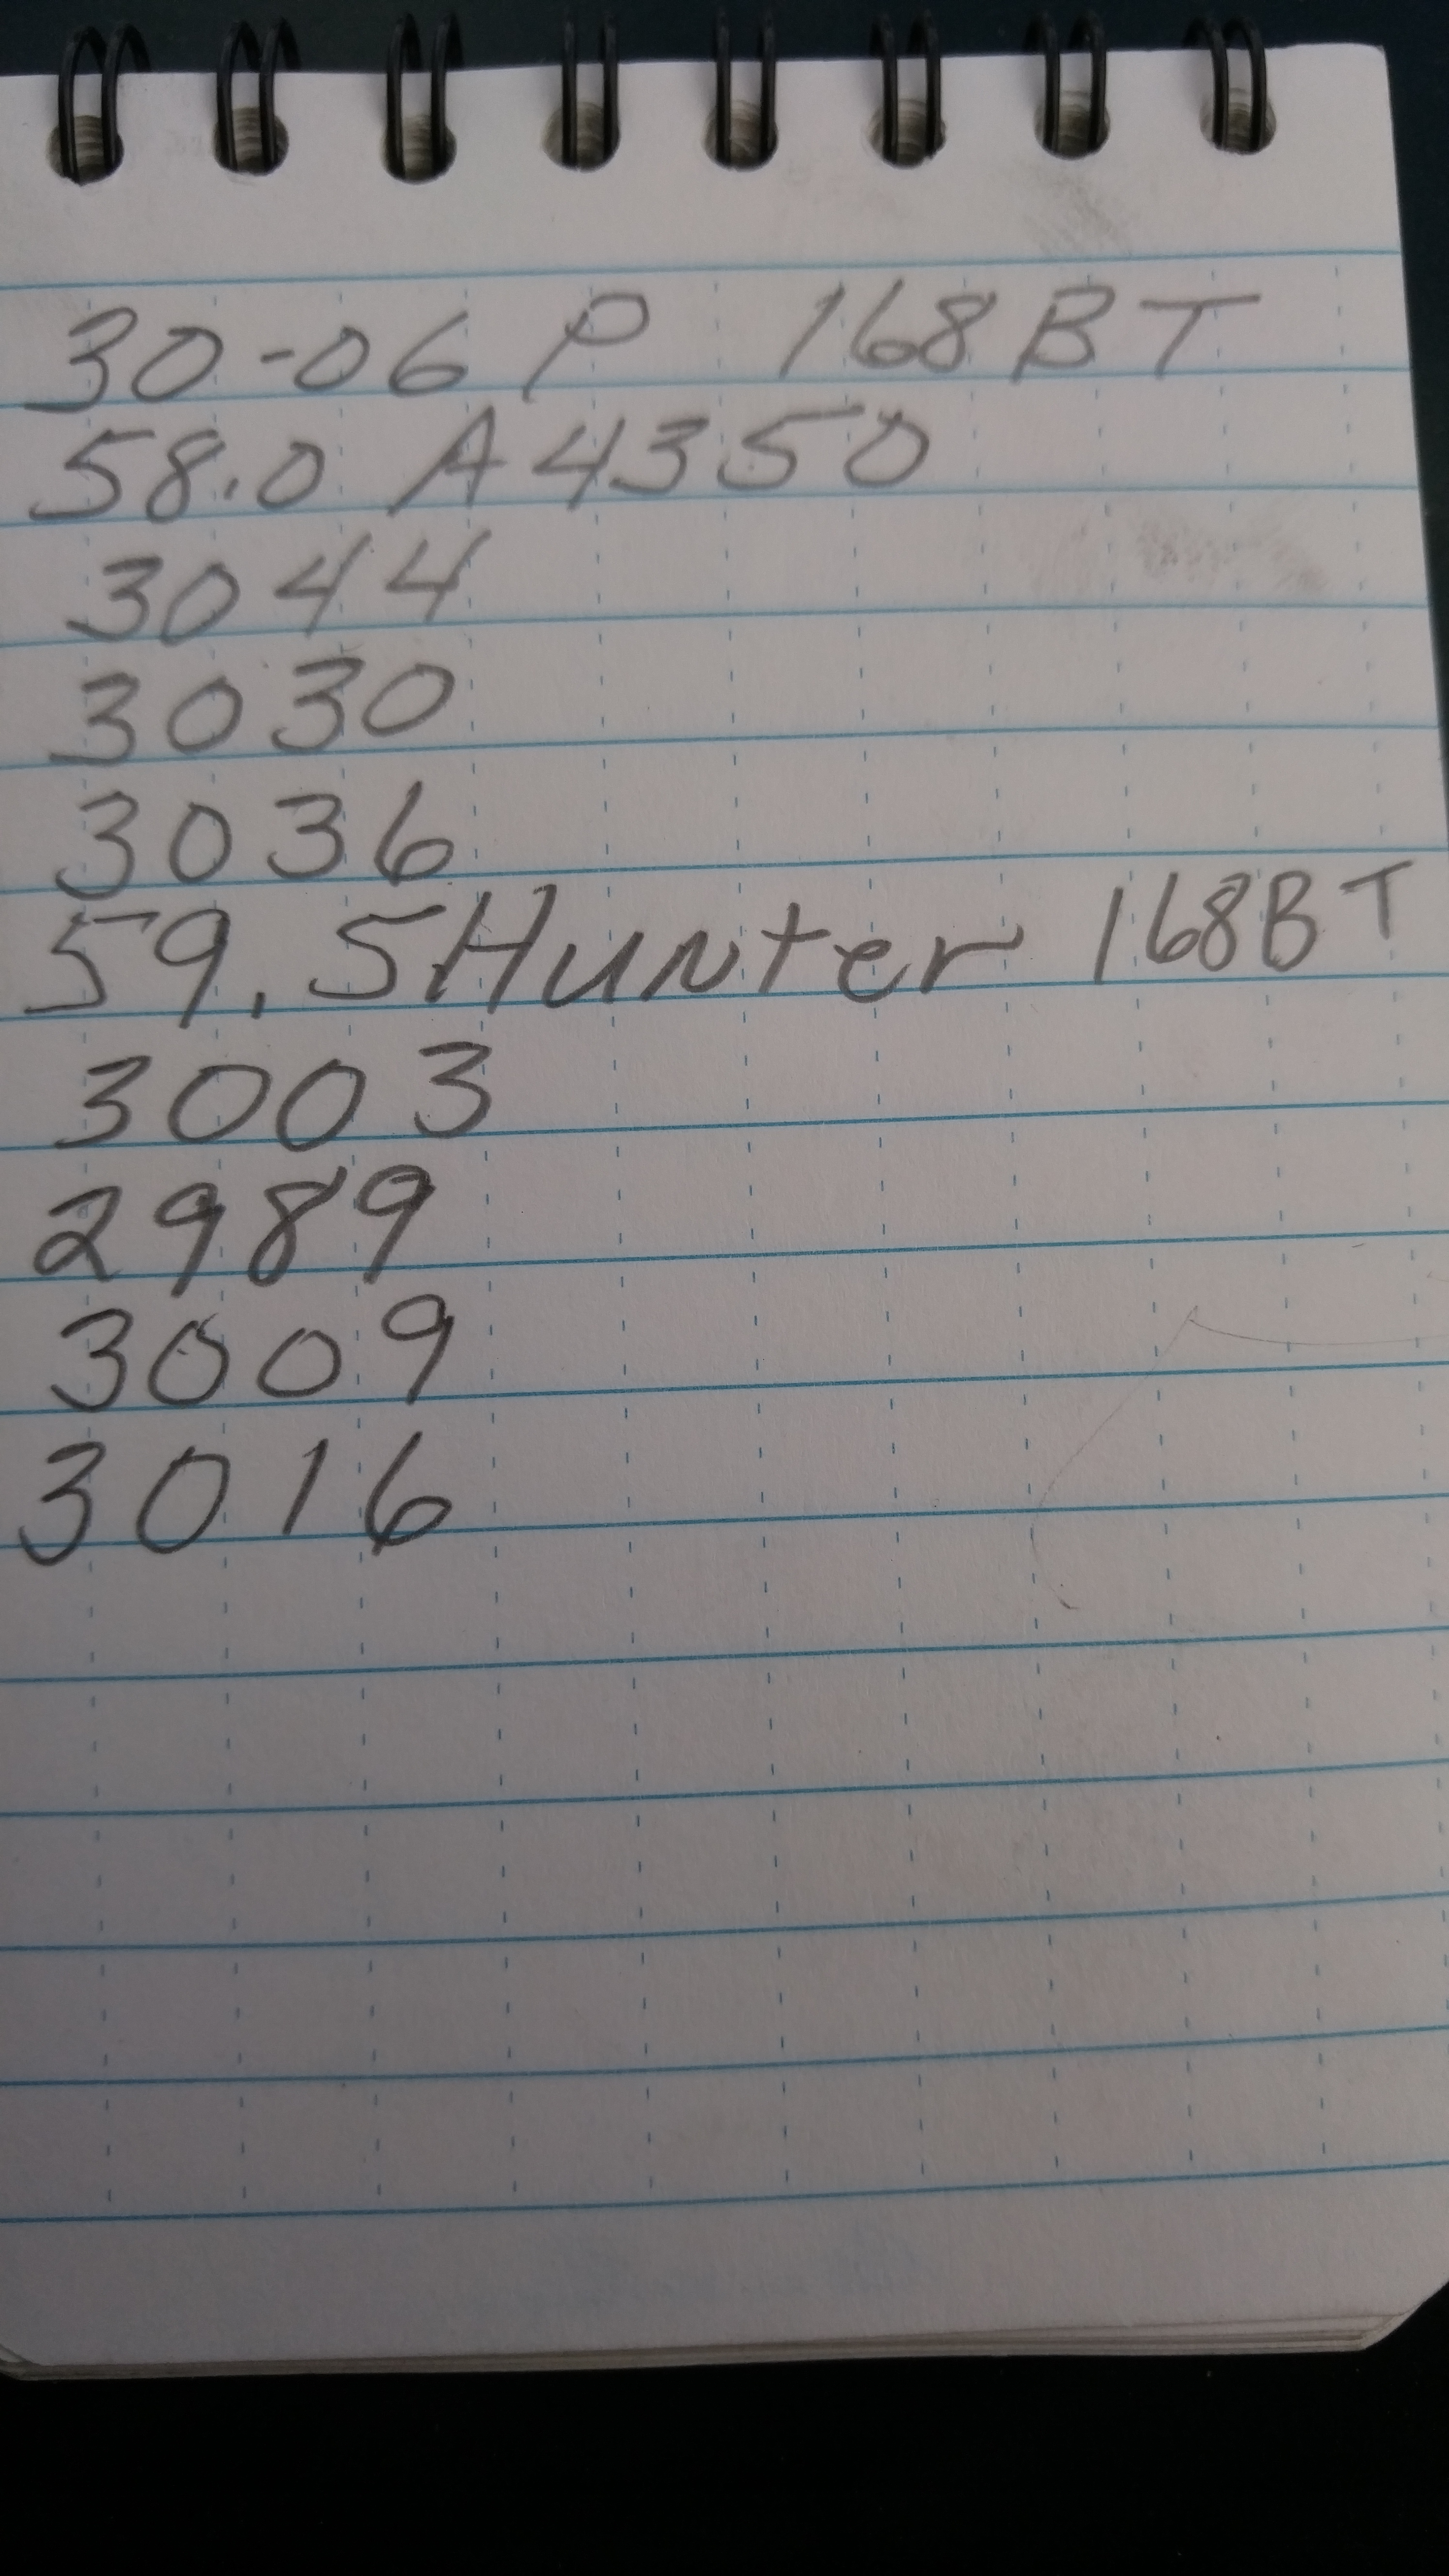 30-06 P 168 BT
58.0 A4350
3044
3030
3036
59.5 Hunter 168BT
3003
2989
3009
3016